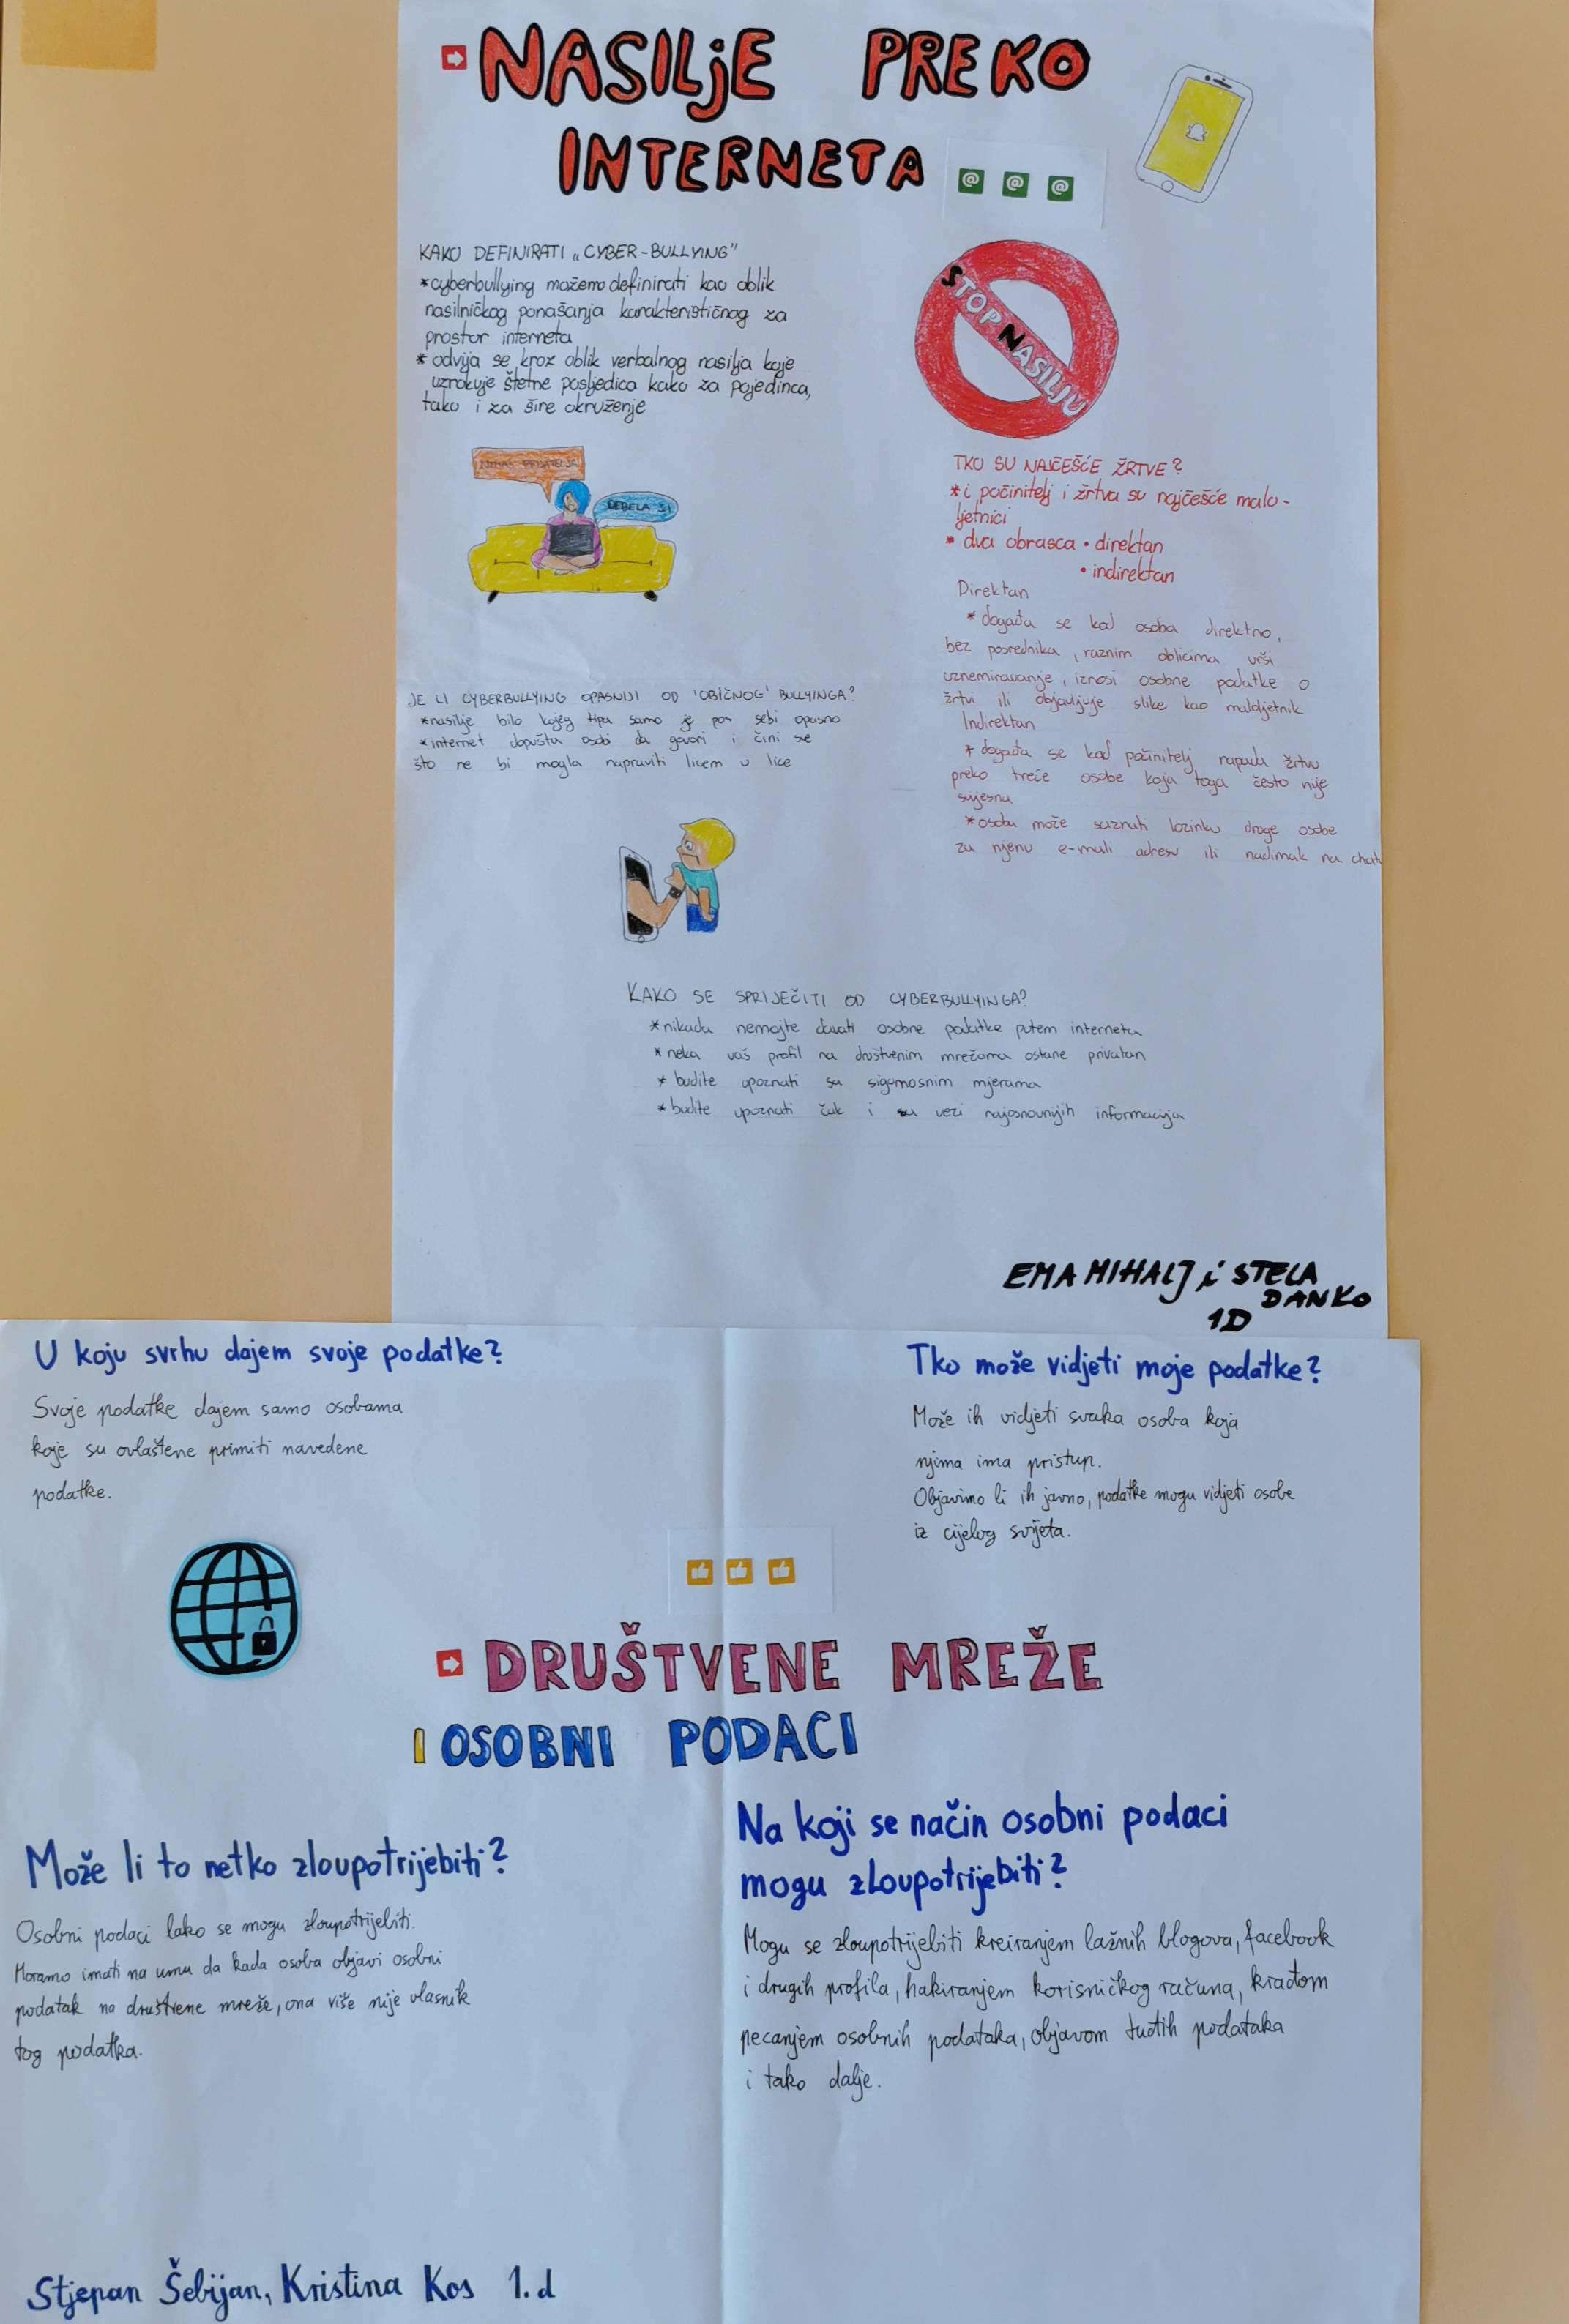 NASILjE PREKO
INTERNETA
@ @ @
KAKO DEFINIRATI „CYBER-BULLYING"
*cyberbullying možemo definirati kao oblik
nasilničkog ponašanja karakterističnog za
prostor interneta
* odvija se kroz oblik verbalnog nasilja koje
uzrokuje štetne posljedica kako za pojedinca,
tako i za šire okruženje
NEMAŠ PRIJATELJA!
DEBELA SI
JE LI CYBERBULLYING OPASNIJI OD 'OBIČNOG' BULLYINGA?
*nasilje bilo kojeg tipa samo je po sebi opasno
*internet dopušta osobi da govori i čini sve
što ne bi mogla napraviti licem u lice
STOP NASILJU
TKO SU NAJČEŠĆE ŽRTVE?
*i počinitelj i žrtva su najčešće malo-
ljetnici
* dva obrasca • direktan
• indirektan
Direktan
* događa se kad osoba direktno,
bez posrednika, raznim oblicima vrši
uznemiravanje, iznosi osobne podatke o
žrtvi ili objavljuje slike kao maloljetnik
Indirektan
* događa se kad počinitelj napada žrtvu
preko treće osobe koja toga često nije
svjesna
*osoba može saznati lozinku druge osobe
za njenu e-mail adresu ili nadimak na chat
KAKO SE SPRIJEČITI OD CYBERBULLYINGA?
*nikada nemojte davati osobne podatke putem interneta
*neka vaš profil na društvenim mrežama ostane privatan
* budite upoznati sa sigurnosnim mjerama
*budite upoznati čak i su vezi najosnovnijih informacija
EMA MIHALJ i STELA
DANKO
1D
U koju svrhu dajem svoje podatke?
Svoje podatke dajem samo osobama
koje su ovlaštene primiti navedene
podatke.
Tko može vidjeti moje podatke?
Može ih vidjeti svaka osoba koja
njima ima pristup.
Objavimo li ih javno, podatke mogu vidjeti osobe
iz cijelog svijeta.
DRUŠTVENE MREŽE
I OSOBNI PODACI
Može li to netko zloupotrijebiti?
Osobni podaci lako se mogu zloupotrijebiti.
Moramo imati na umu da kada osoba objavi osobni
podatak na društvene mreže, ona više nije vlasnik
tog podatka.
Na koji se način osobni podaci
mogu zloupotrijebiti?
Mogu se zloupotrijebiti kreiranjem lažnih blogova, facebook
i drugih profila, hakiranjem korisničkog računa, krađom
pecanjem osobnih podataka, objavom tuđih podataka
i tako dalje.
Stjepan Šebijan, Kristina Kos 1.d